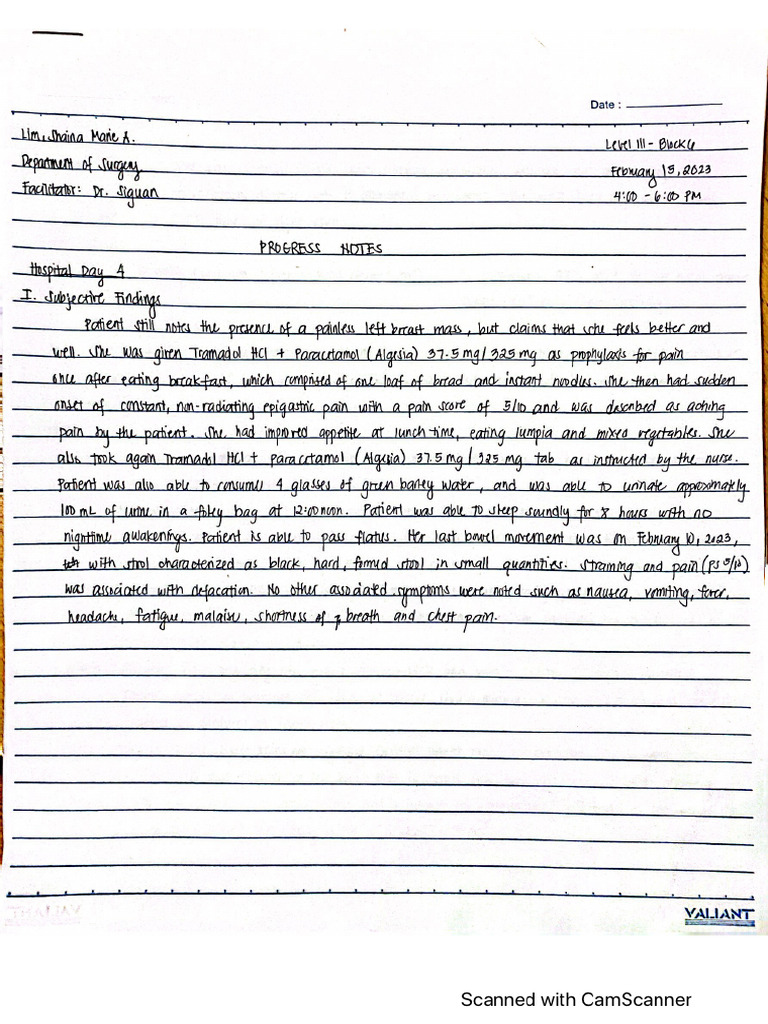 Date :
Lim, Shaina Marie A.
Level III - Block 6
Department of Surgery
February 15, 2023
Facilitator: Dr. Siguan
4:00 - 6:00 PM
PROGRESS NOTES
Hospital Day 4
I. Subjective Findings
Patient still notes the presence of a painless left breast mass, but claims that she feels better and
well. She was given Tramadol HCl + Paracetamol (Algesia) 37.5 mg/325 mg as prophylaxis for pain
once after eating breakfast, which comprised of one loaf of bread and instant noodles. She then had sudden
onset of constant, non-radiating epigastric pain with a pain score of 5/10 and was described as aching
pain by the patient. She had improved appetite at lunch time, eating lumpia and mixed vegetables. She
also took again Tramadol HCl + Paracetamol (Algesia) 37.5 mg/325 mg tab as instructed by the nurse.
Patient was also able to consume 4 glasses of green barley water, and was able to urinate approximately
100 mL of urine in a foley bag at 12:00 noon. Patient was able to sleep soundly for 8 hours with no
nighttime awakenings. Patient is able to pass flatus. Her last bowel movement was on February 10, 2023,
with stool characterized as black, hard, formed stool in small quantities. Straining and pain (PS 5/10)
was associated with defacation. No other associated symptoms were noted such as nausea, vomiting, fever,
headache, fatigue, malaise, shortness of breath and chest pain.
VALIANT
Scanned with CamScanner